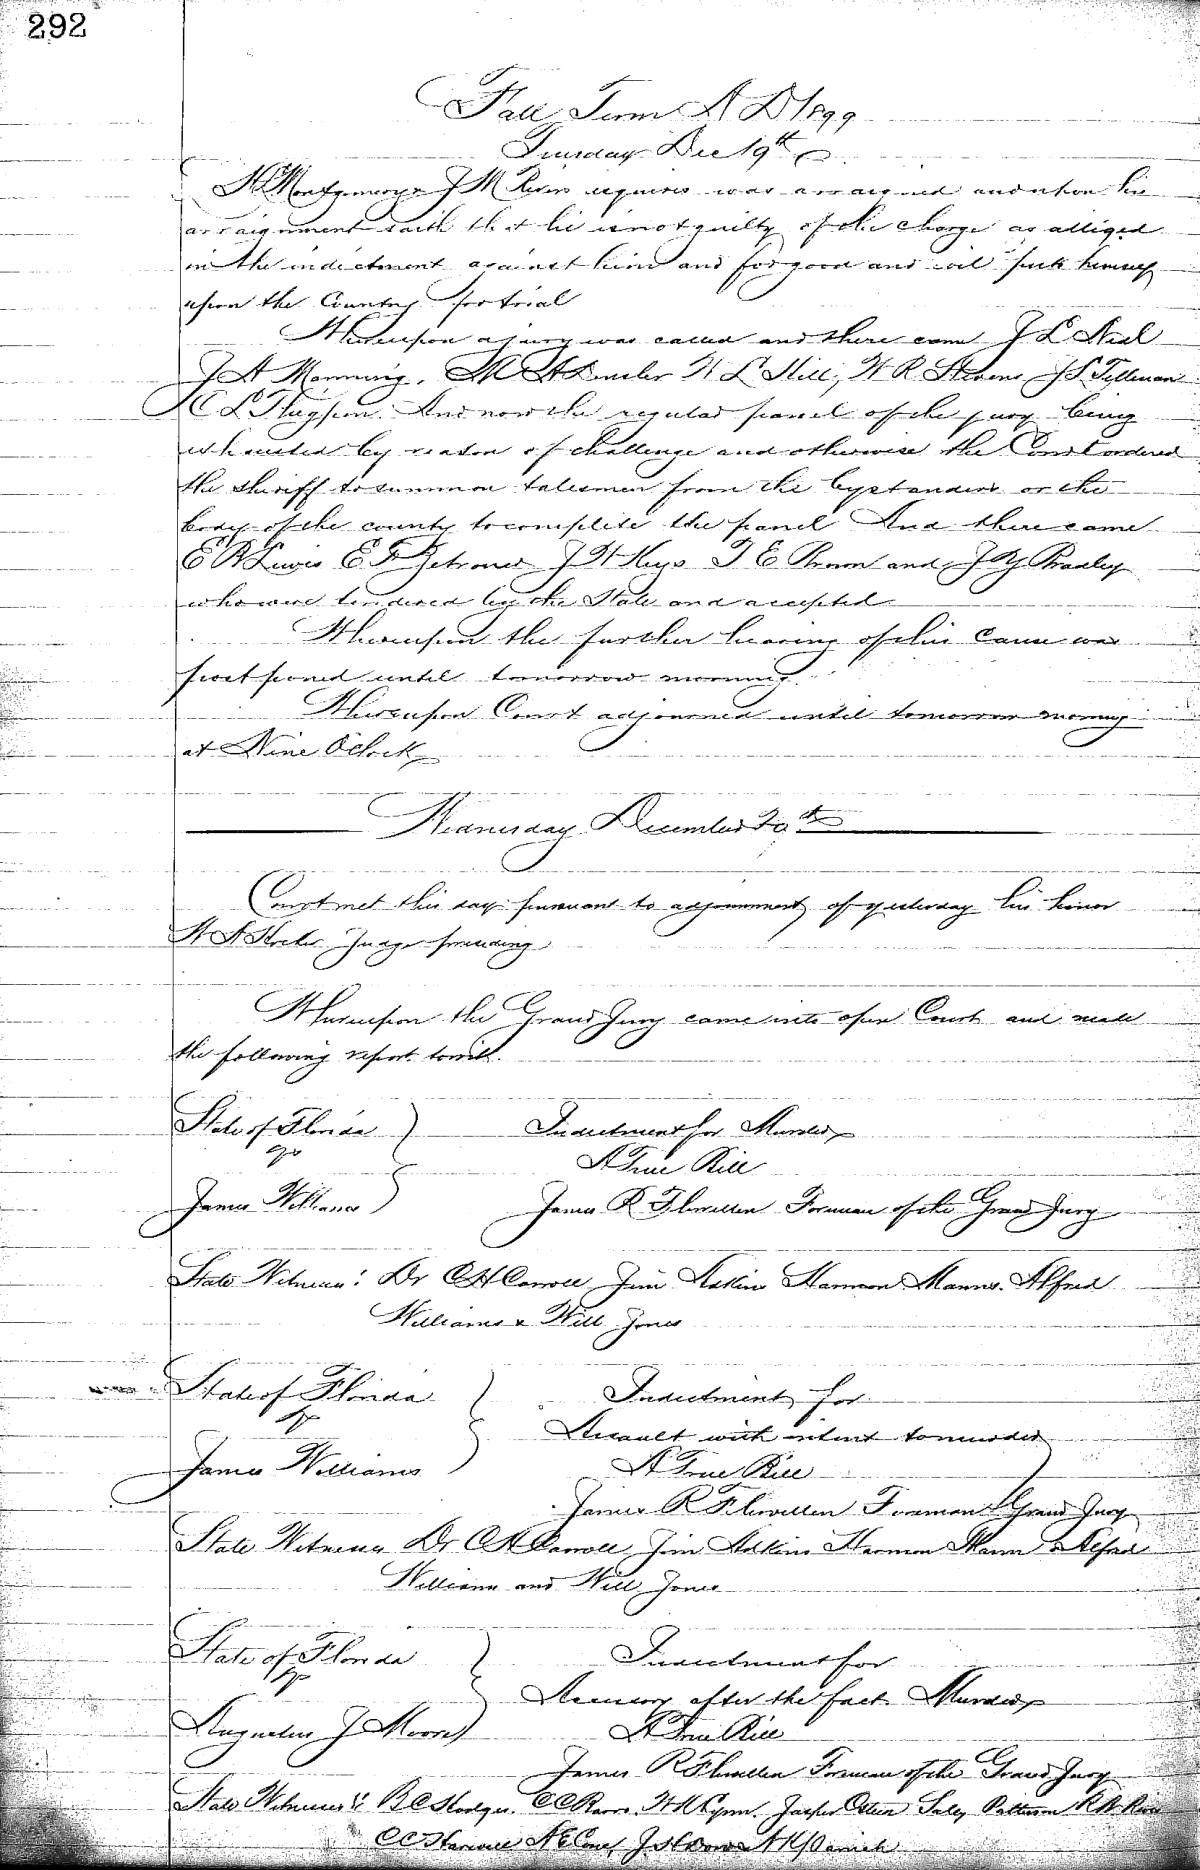 292
Fall Term A D 1899
Tuesday Dec 19th
J M esquires was arraigned and upon his
arraignment saith that he is not guilty of the charge as alleged
in the indictment against him and for good and evil puts himself
upon the Country for trial
Whereupon a jury was called and there came J L Neal
J A Manning, W L Hill, W R Stevens J S Tillman
C L And now the regular panel of the jury being
exhausted by reason of challenge and otherwise the Court ordered
the sheriff to summon talesmen from the bystanders or the
body of the county to complete the panel And there came
E B Lewis E J W Keys T E and J Bradley
who were tendered by the State and accepted
Whereupon the further hearing of this cause was
postponed until tomorrow morning.
Whereupon Court adjourned until tomorrow morning
at Nine O'Clock
Wednesday December 20th
Court met this day pursuant to adjournment of yesterday his honor
Judge presiding
Whereupon the Grand Jury came into open Court and made
the following report towit.
State of Florida Indictment for Murder
vs A True Bill
James Williams James R Flewellen Foreman of the Grand Jury
State Witness: Dr C H Carroll Jim Adkins Harmon Manns. Alfred
Williams & Will Jones
State of Florida Indictment for
vs Assault with intent to murder
James Williams A True Bill
James R Flewellen Foreman Grand Jury
State Witness Dr C H Carroll, Jim Adkins Harmon Mann & Alfred
Williams and Will Jones
State of Florida Indictment for
vs Accessory after the fact Murder
Augustus J Moore A True Bill
James R Flewellen Foreman of the Grand Jury
State Witnesses: B C Hodges.